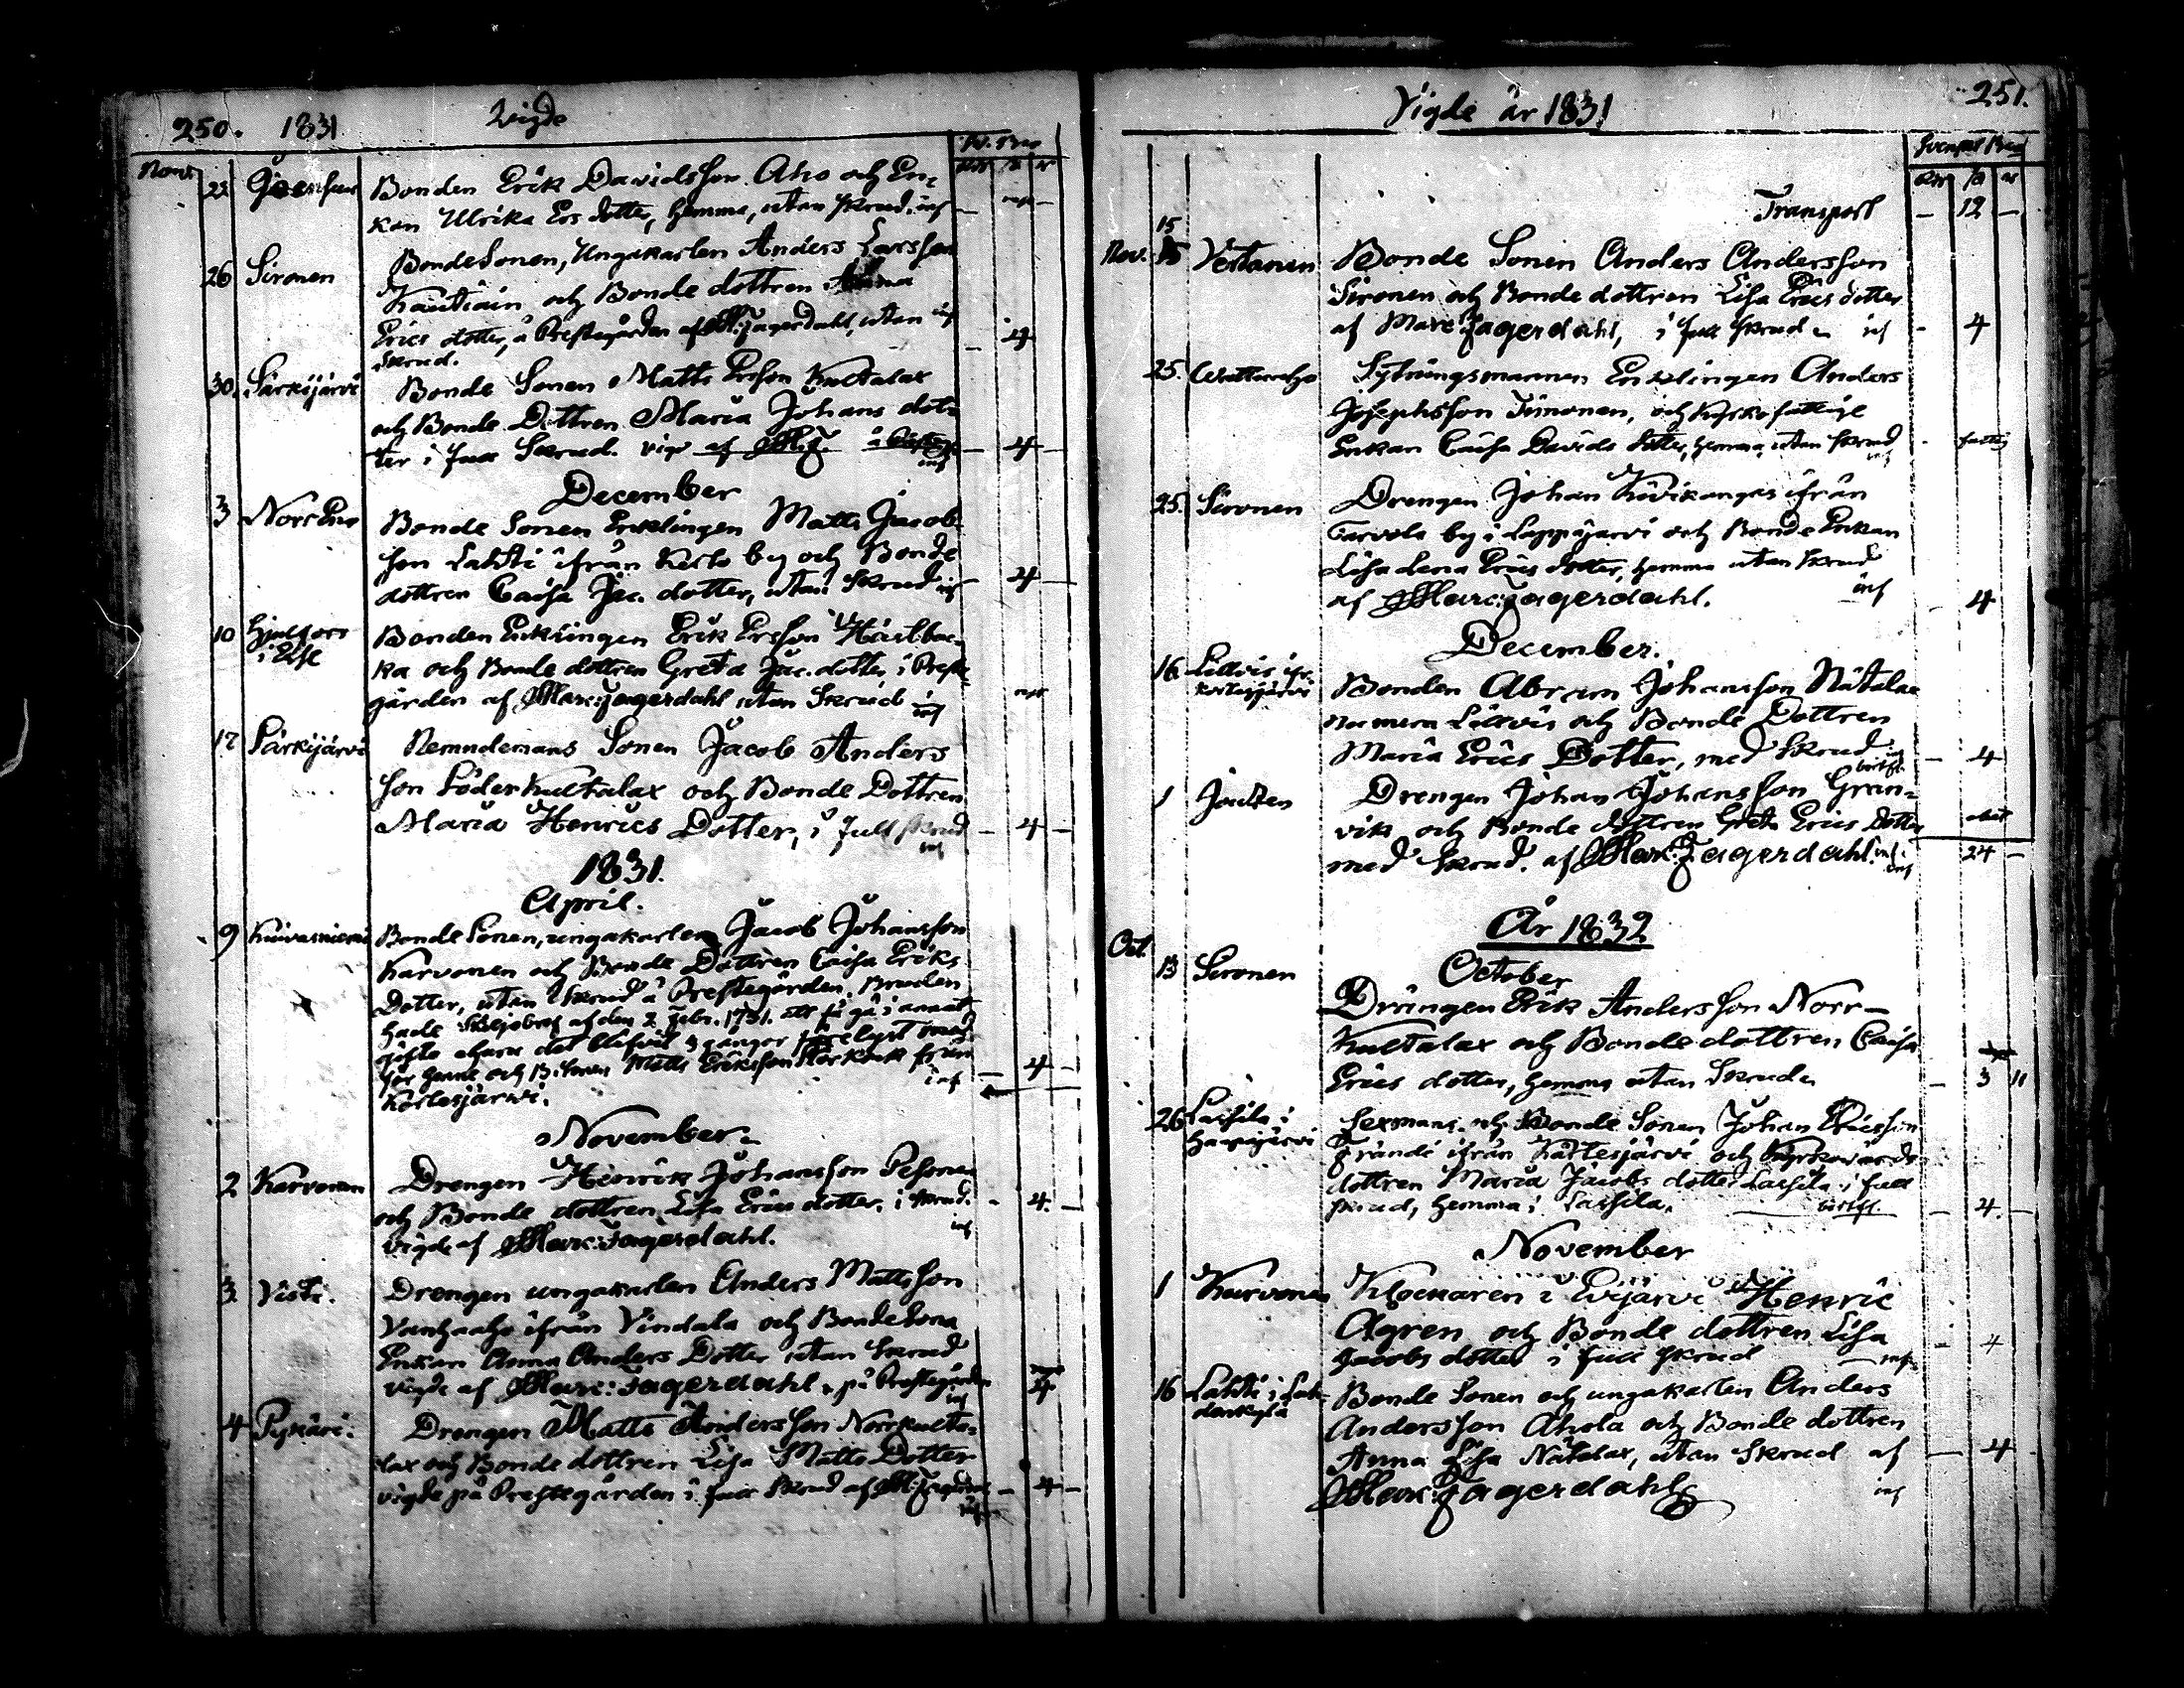 250. 1831 Vigde
Nov.
22 Bonden Erik Davidsson Aho och En-
kan Ulrika Ers dotter, hemma, utan skrud. inf
26 Sironen BondeSonen, Ungakarlen Anders Larsson
Kautiain och Bonde dottren Anna
Erics dotter, å Prestegården af M: Jagerdahl, utan inf
Skrud. 4
30. Särkijärvi Bonde Sonen Matts Ersson Kultalax
och Bonde Dottren Maria Johans dot-
ter i full Skrud. inf 4
December
3 Bonde Sonen Enklingen Matts Jacob-
son Lahti ifrån Kerto by och Bonde
dottren Caisa Jac. dotter, utan Skrud inf 4
10 Bonden Enklingen Erik Ersson Hästbac-
ka och Bonde dottren Greta Jac. dotter, i Preste-
gården af Marc: Jagerdahl utan Skrud inf
17 Särkijärvi Nemndemans Sonen Jacob Anders
son Söder Kultalax och Bonde Dottren
Maria Henrics Dotter, i full skrud inf 4
1831.
April.
9 Kuivasniemi Bonde Sonen, ungakarlen Jacob Johansson
Karvonen och Bonde Dottren Caisa Eriks
Dotter, utan Skrud å Prestegården. Bruden
hade af den 2 Febr. 1731. att få gå i annat
gifte 3 gånger lyst
för henne och B. Sonen Matts Ericksson från
Kortesjärvi. inf 4
November
2 Karvonen Drengen Henrik Johansson Pesonen
och Bonde dottren Lisa Erics dotter, i skrud. 4.
vigde af Marc: Jagerdahl. inf
3. Visti. Drengen ungakarlen Anders Mattsson
Vanhaaho ifrån Vindala och BondeSona
Enkan Anna Anders Dotter utan Skrud
vigde af Marc: Jagerdahl, på Prestegården 4
inf
4 Drengen Matts Andersson Norrkulta-
lax och Bonde dottren Lisa Matts Dotter
vigde på Prestegården i full Skrud af M: Jagerdahl 4
inf
Vigde år 1831 251.
Transport 12
15
Nov. 15 Vertanen Bonde Sonen Anders Andersson
Sironen och Bonde dottren Lisa Erics dotter
af Marc: Jagerdahl, i full skrud inf 4
25. Sytningsmannen Enklingen Anders
Josephsson Timonen, och Kyrkofattige
Enkan Caisa Davids dotter, hemma, utan skrud fattig
inf
25. Sironen Drengen Johan Kovikangas ifrån
Tarvola by i Lappajärvi och Bonde Enkan
Lisa Lena Erics dotter, hemma utan skrud
af Marc: Jagerdahl. inf 4
December.
16. Bonden Abram Johansson Nätalax
numera och Bonde Dottren
Maria Erics Dotter, med Skrud 4
1 Drengen Johan Johansson Gran-
vik och Bonde dottren Greta Erics Dotter
med skrud. af Marc: Jagerdahl. inf 24
År 1832
Oct. October
13 Sironen Drängen Erik Andersson Norr-
kultalax och Bonde dottren Caisa
Erics dotter, hemma utan Skrud. 3 11
26 Lassila i Sexmans och Bonde Sonen Johan Ericsson
Frände ifrån Kårtesjärvi och Kyrkovärds
dottren Maria Jacobs dotter Lassila, i full
skrud, hemma i Lassila. 4.
November
1 Karvonen Klockaren i Evijärvi Henric
Ågren och Bonde dottren Lisa
Jacobs dotter i full skrud inf 4
16 Bonde Sonen och ungakarlen Anders
Andersson Ahola och Bonde dottren
Anna Lisa Nätalax, utan Skrud af 4
Marc: Jagerdahl inf